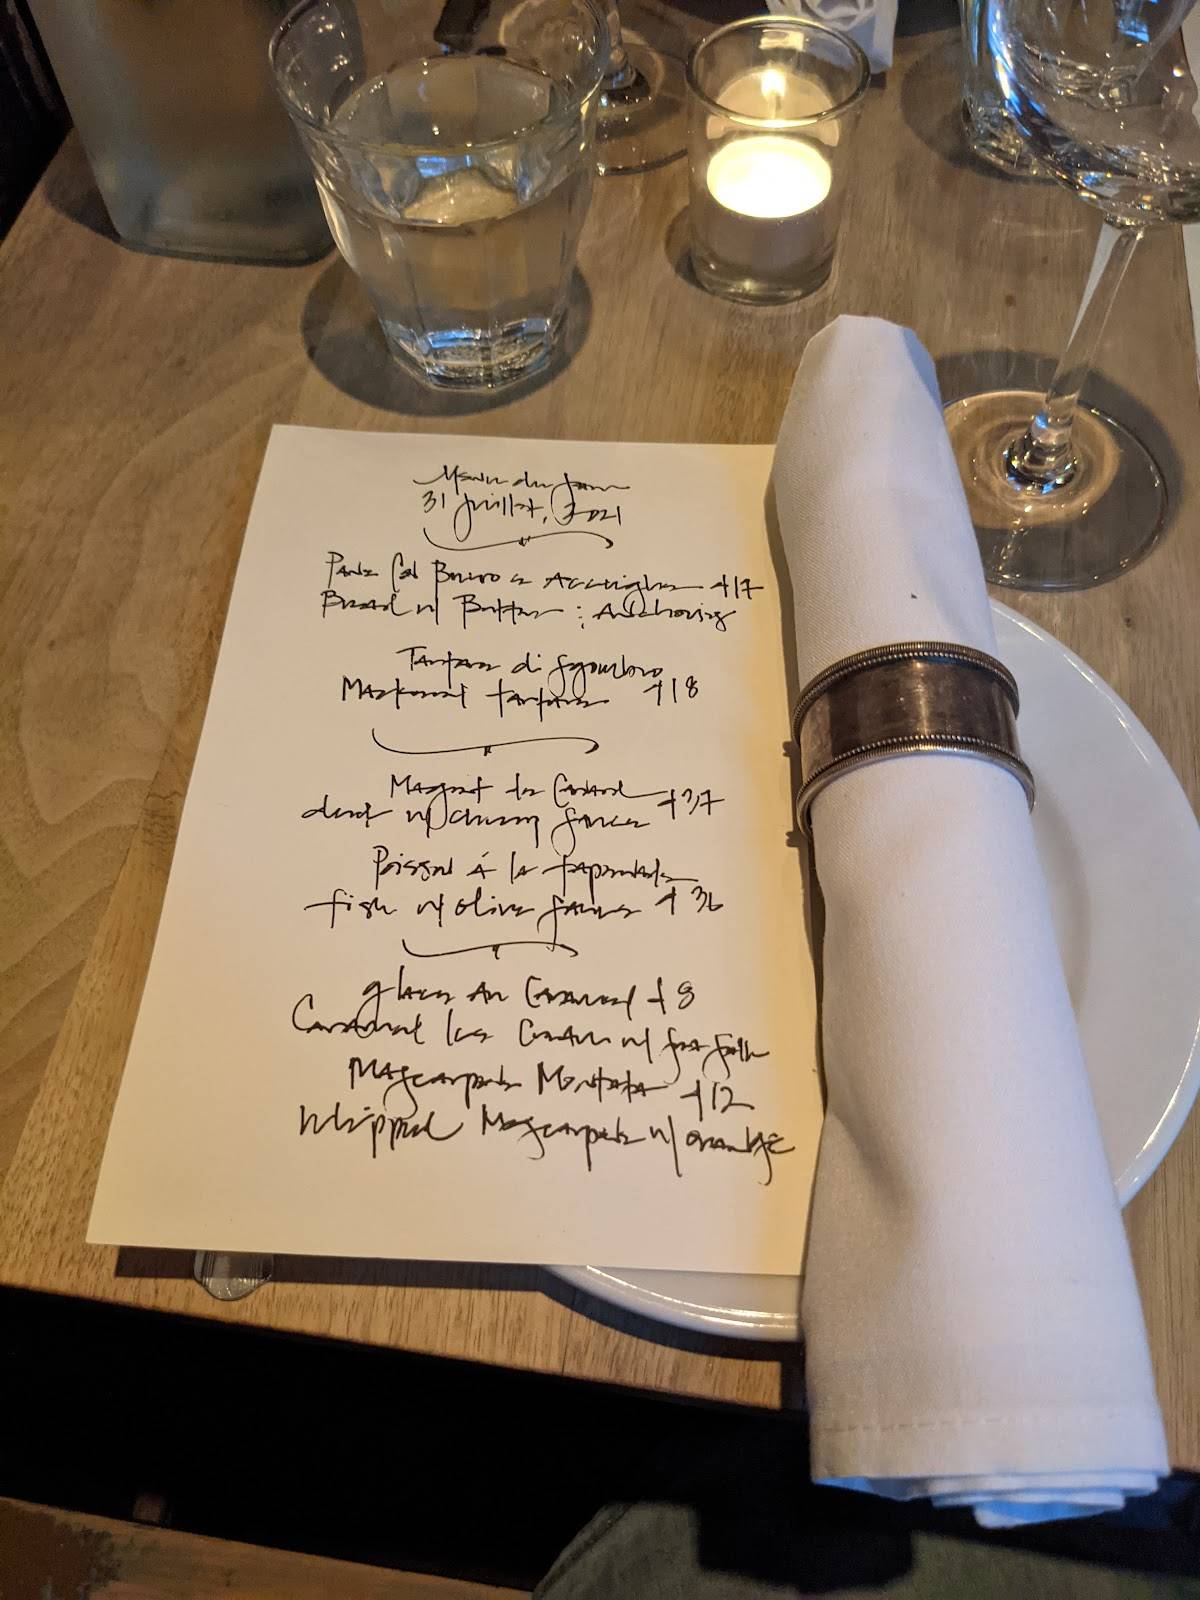 Menu du Jour
31 Juillet, 2021
Pane Col Burro e Acciughe +17
Bread w/ Butter : Anchovies
Tartare di Sgombro
Mackerel tartare +18
Magret de Canard
duck w/ cherry sauce +37
Poisson á la tapenade
fish w/ olive sauce +36
glace au Caramel +8
Caramel Ice Cream w/ sea salt
Mascarpone Montata +12
Whipped Mascarpone w/ orange